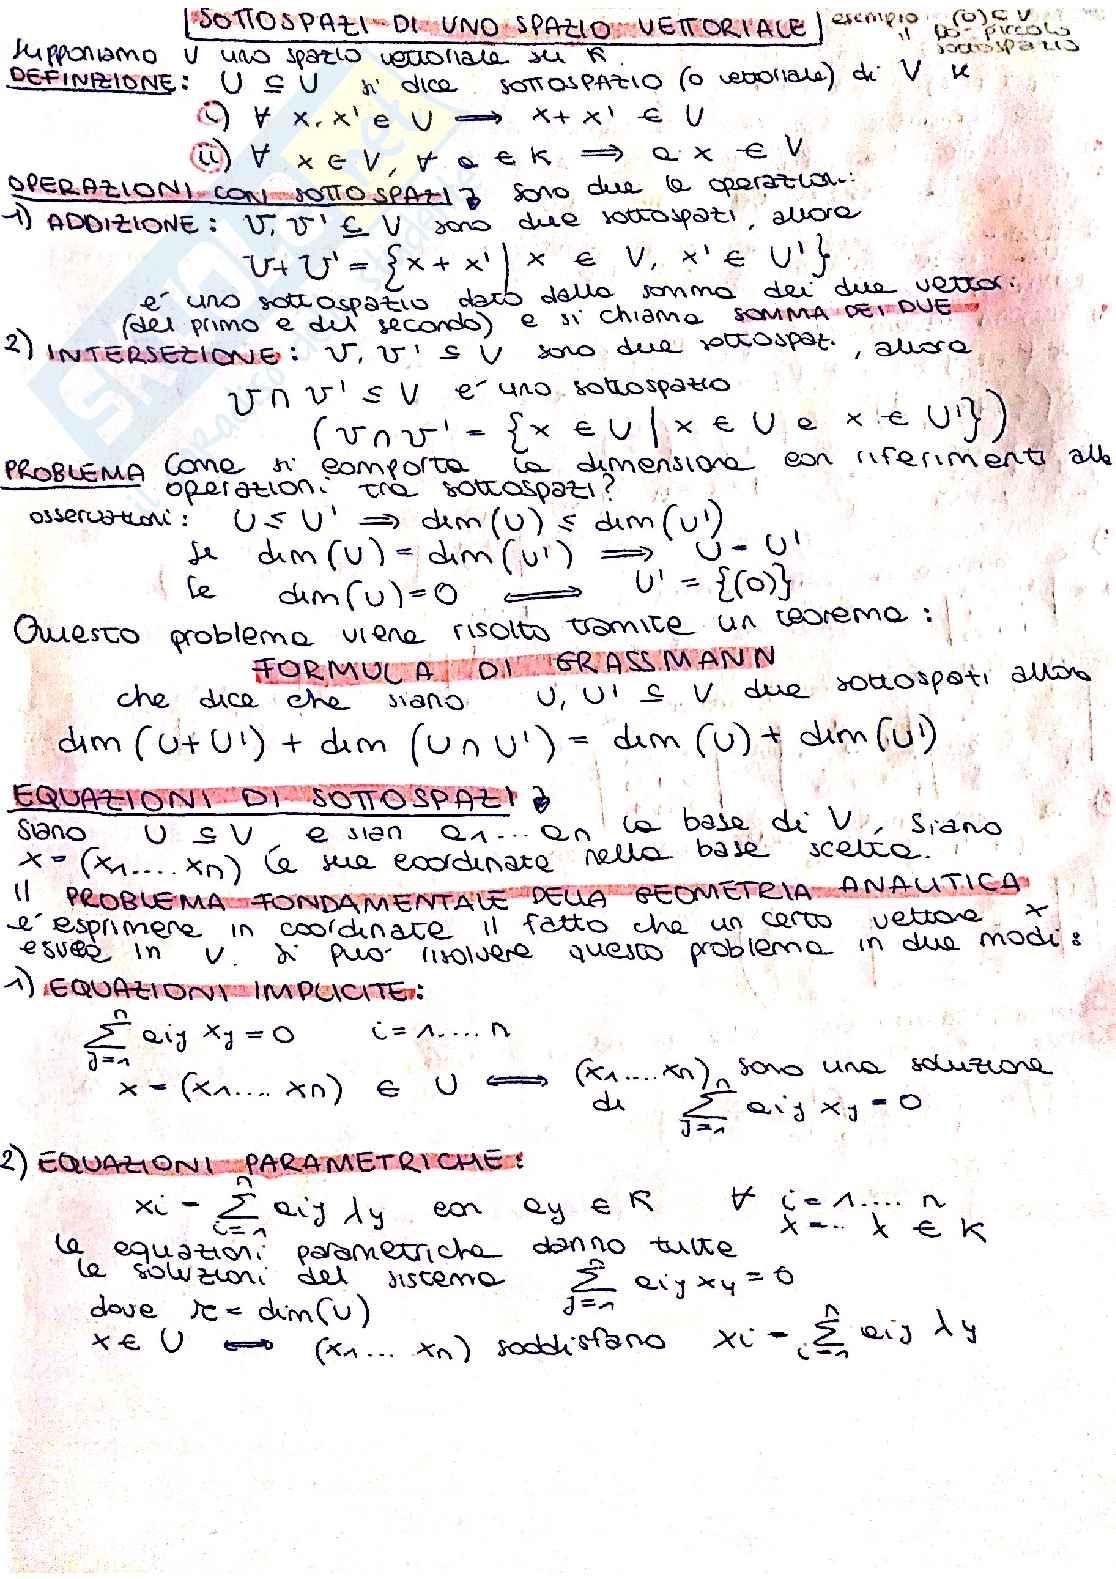 SOTTOSPAZI DI UNO SPAZIO VETTORIALE
esempio: (0) ⊆ V
il più piccolo
sottospazio
supponiamo V uno spazio vettoriale su K.
DEFINIZIONE: U ⊆ V si dice SOTTOSPAZIO (o vettoriale) di V se
i) ∀ x, x' ∈ U ⟹ x + x' ∈ U
ii) ∀ x ∈ V, ∀ a ∈ K ⟹ a x ∈ V
OPERAZIONI CON SOTTOSPAZI: sono due le operazioni:
1) ADDIZIONE: U, U' ⊆ V sono due sottospazi, allora
U + U' = {x + x' | x ∈ V, x' ∈ U'}
e' uno sottospazio dato dalla somma dei due vettori
(del primo e del secondo) e si chiama SOMMA DEI DUE
2) INTERSEZIONE: U, U' ⊆ V sono due sottospazi, allora
U ∩ U' ⊆ V e' uno sottospazio
(U ∩ U' = {x ∈ U | x ∈ U e x ∈ U'})
PROBLEMA Come si comporta la dimensione con riferimenti alle
operazioni tra sottospazi?
osservazioni: U ⊆ U' ⟹ dim(U) ≤ dim(U')
se dim(U) = dim(U') ⟹ U = U'
se dim(U) = 0 ⟺ U' = {(0)}
Questo problema viene risolto tramite un teorema:
FORMULA DI GRASSMANN
che dice che siano U, U' ⊆ V due sottospazi allora
dim (U + U') + dim (U ∩ U') = dim (U) + dim (U')
EQUAZIONI DI SOTTOSPAZI
siano U ⊆ V e sian e1 ... en la base di V. Siano
x = (x1 .... xn) le sue coordinate nella base scelta.
il PROBLEMA FONDAMENTALE DELLA GEOMETRIA ANALITICA
e' esprimere in coordinate il fatto che un certo vettore x
in V. si puo' risolvere questo problema in due modi:
1) EQUAZIONI IMPLICITE:
n
∑ aij xj = 0 i = 1 .... n
j=1
x = (x1 .... xn) ∈ U ⟺ (x1 .... xn) sono una soluzione
di ∑ aij xj = 0
2) EQUAZIONI PARAMETRICHE:
xi = ∑ aij λj con aj ∈ K ∀ i = 1 .... n
λ ∈ K
le equazioni parametriche danno tutte
le soluzioni del sistema ∑ aij xj = 0
dove r = dim(U)
x ∈ U ⟺ (x1 ... xn) soddisfano xi = ∑ aij λj